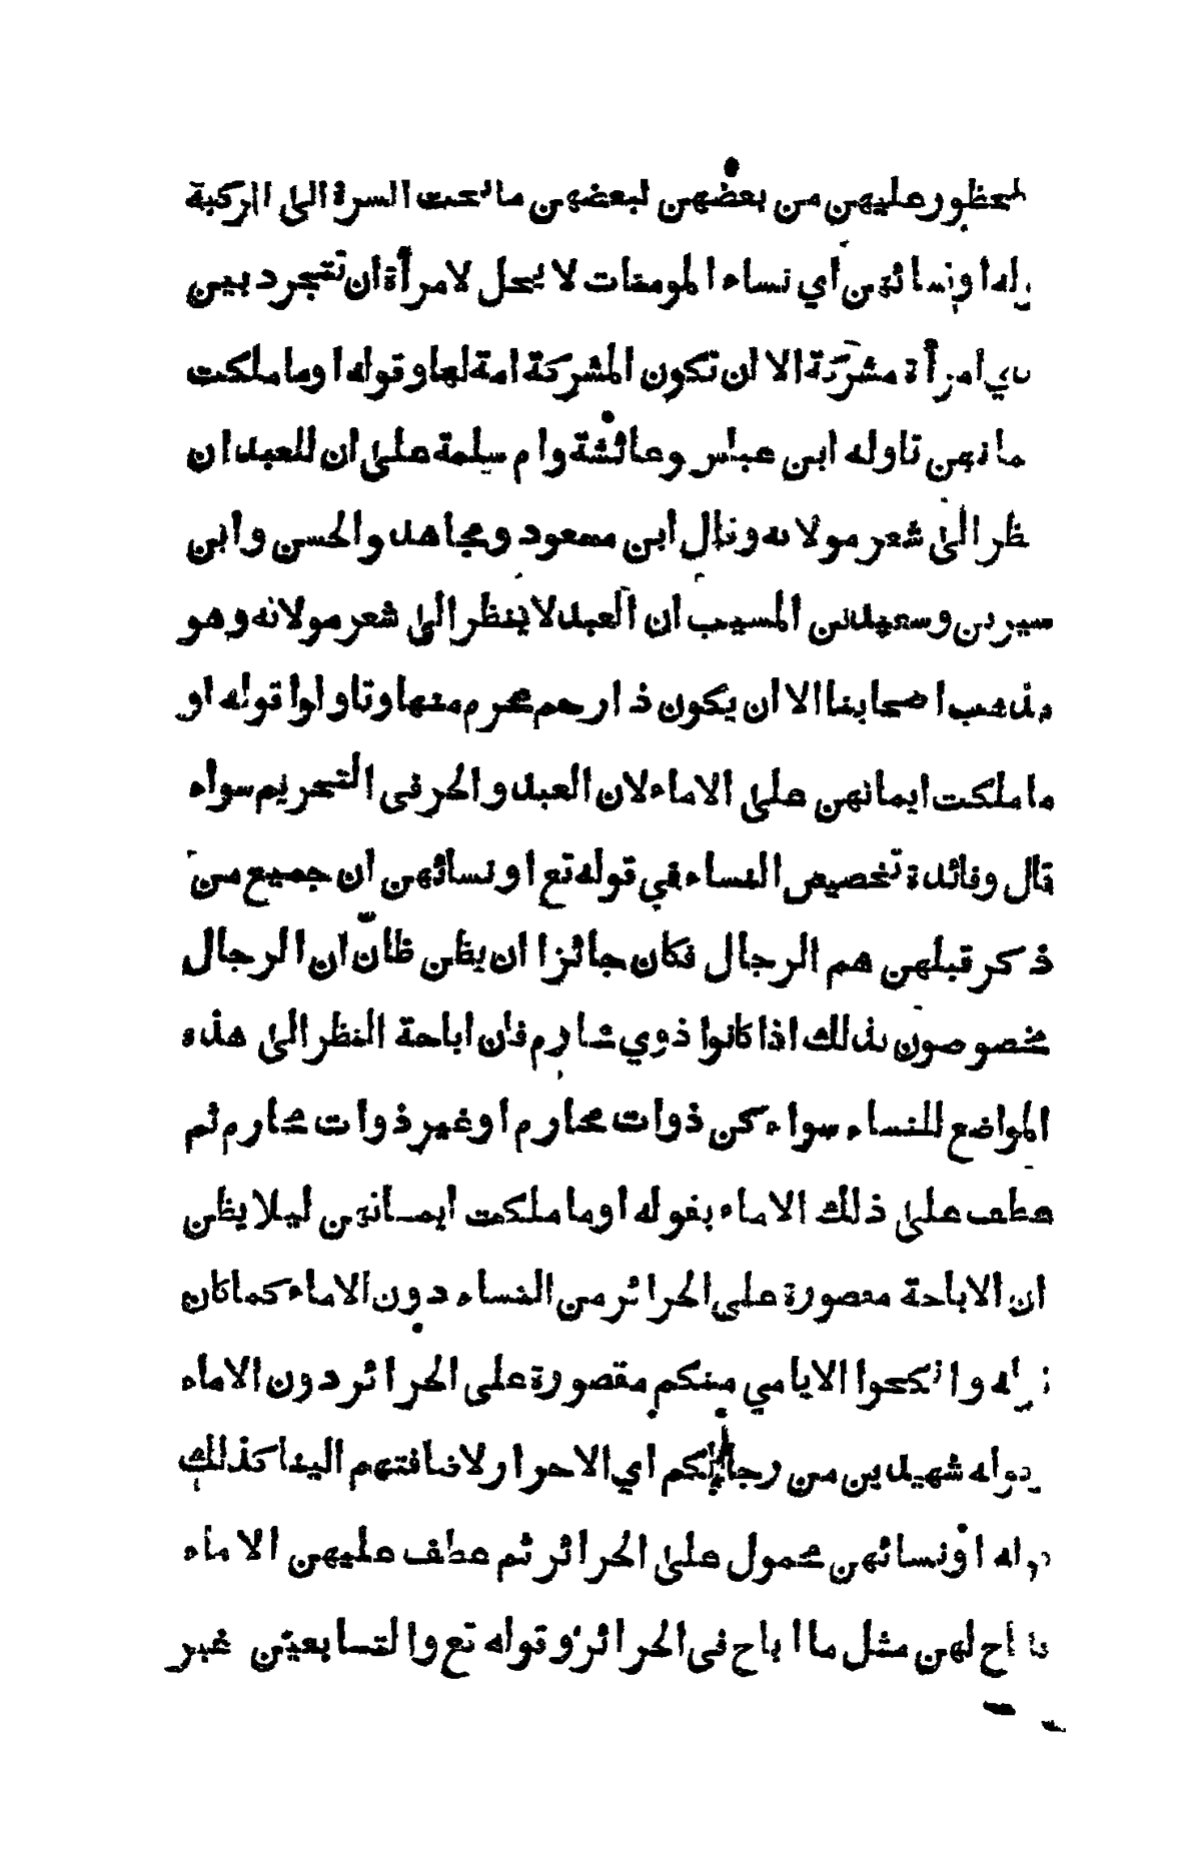 لمحظور عليهن من بعضهن لبعضهن ما تحت السرة الى الركبة
وله او نسائهن أي نساء المومنات لا يحل لامرأة ان تتجرد بين
امرأة مشركة الا ان تكون المشركة امة لها وقوله او ما ملكت
مانهن تاوله ابن عباس وعائشة وام سلمة على ان للعبد ان
ظر الى شعر مولاته وقال ابن مسعود ومجاهد والحسن وابن
سيرين وسعيد بن المسيب ان العبد لا ينظر الى شعر مولاته وهو
مذهب اصحابنا الا ان يكون ذا رحم محرم منها وتاولوا قوله او
ما ملكت ايمانهن على الاماء لان العبد والحر في التحريم سواء
قال وفائدة تخصيص النساء في قوله تع او نسائهن ان جميع من
ذكر قبلهن هم الرجال فكان جائزا ان يظن ظانّ ان الرجال
مخصوصون بذلك اذا كانوا ذوي محارم فان اباحة النظر الى هذه
المواضع للنساء سواء كن ذوات محارم او غير ذوات محارم ثم
عطف على ذلك الاماء بقوله او ما ملكت ايمانهن ليلا يظن
ان الاباحة مقصورة على الحرائر من النساء دون الاماء كما كان
قوله وانكحوا الايامي منكم مقصورة على الحرائر دون الاماء
قوله شهيدين من رجالكم اي الاحرار لاضافتهم الينا كذلك
قوله او نسائهن محمول على الحرائر ثم عطف عليهن الاماء
فاباح لهن مثل ما اباح في الحرائر وقوله تع والتابعين غير